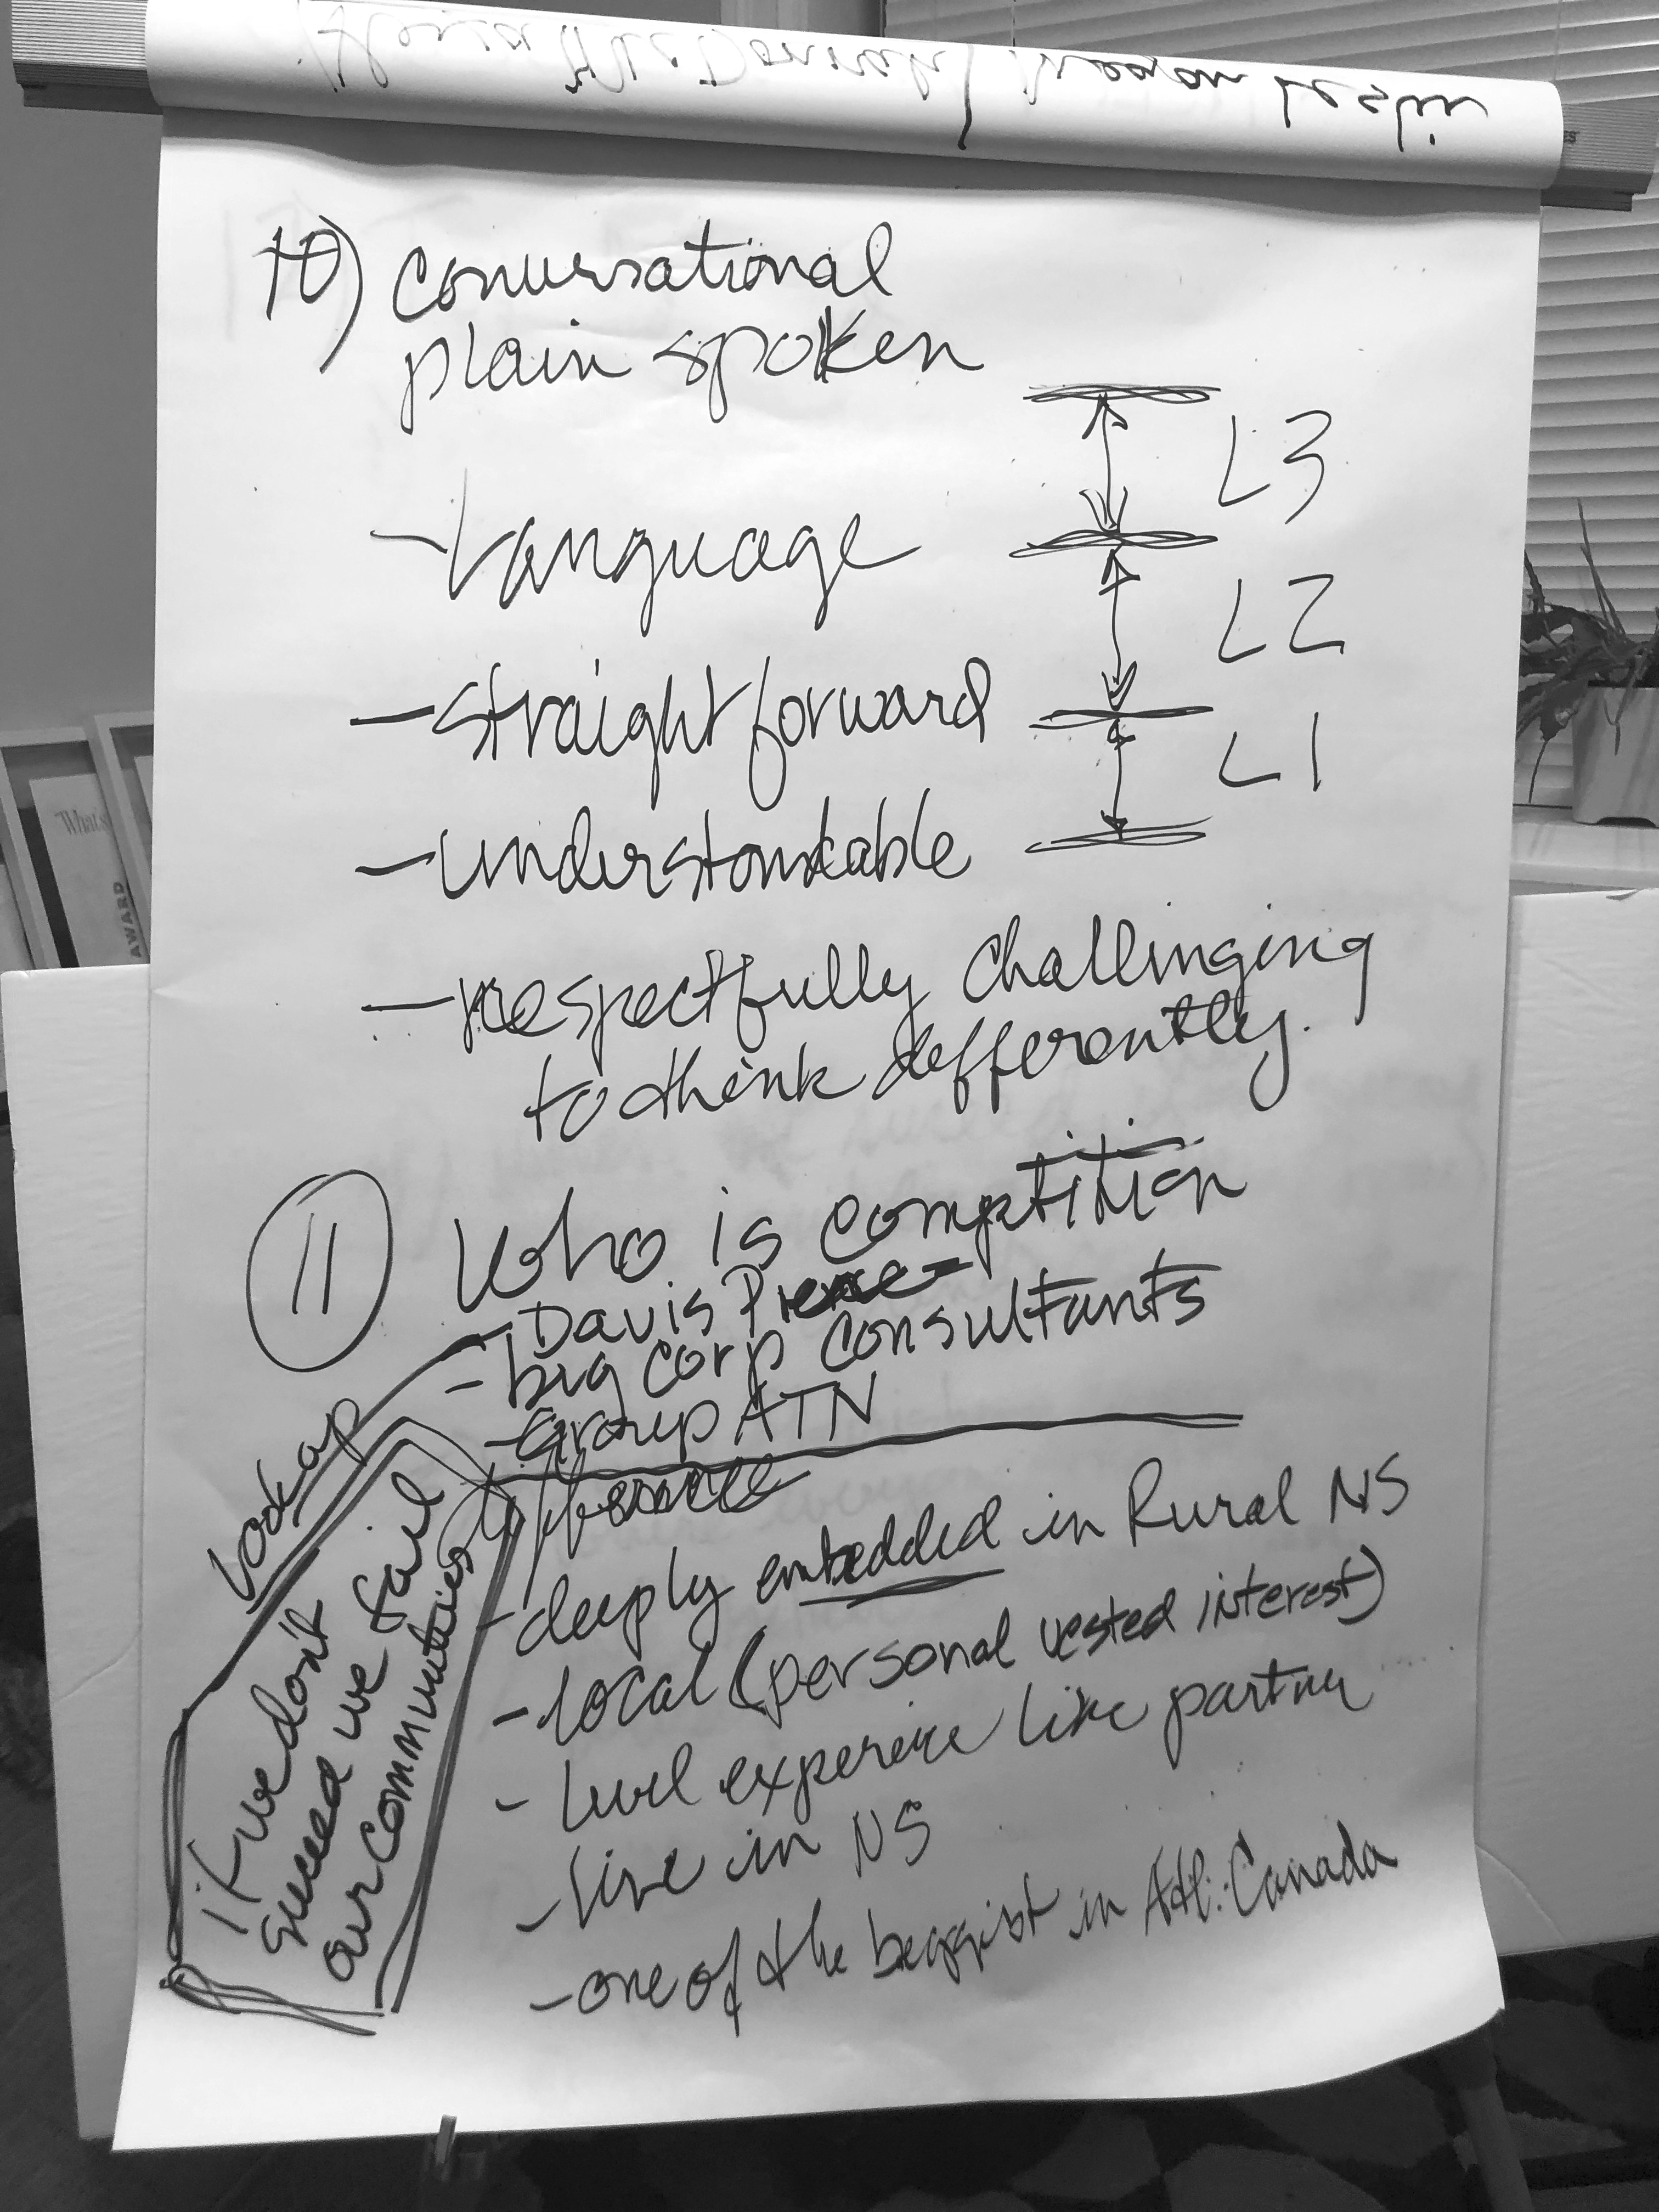 10) Conversational
plain spoken
- Language
- straight forward
- understandable
- respectfully challinging
to think defferently.
L3
L2
L1
11 Who is competition
- Davis Pierce
- big corp consultants
- Group ATN
Look up
difference
- deeply embedded in Rural NS
- local (personal vested interest)
- level experience like partner
- live in NS
- one of the beggist in Atl. Canada
if we don't
succeed we fail
our communities
What's
AWARD